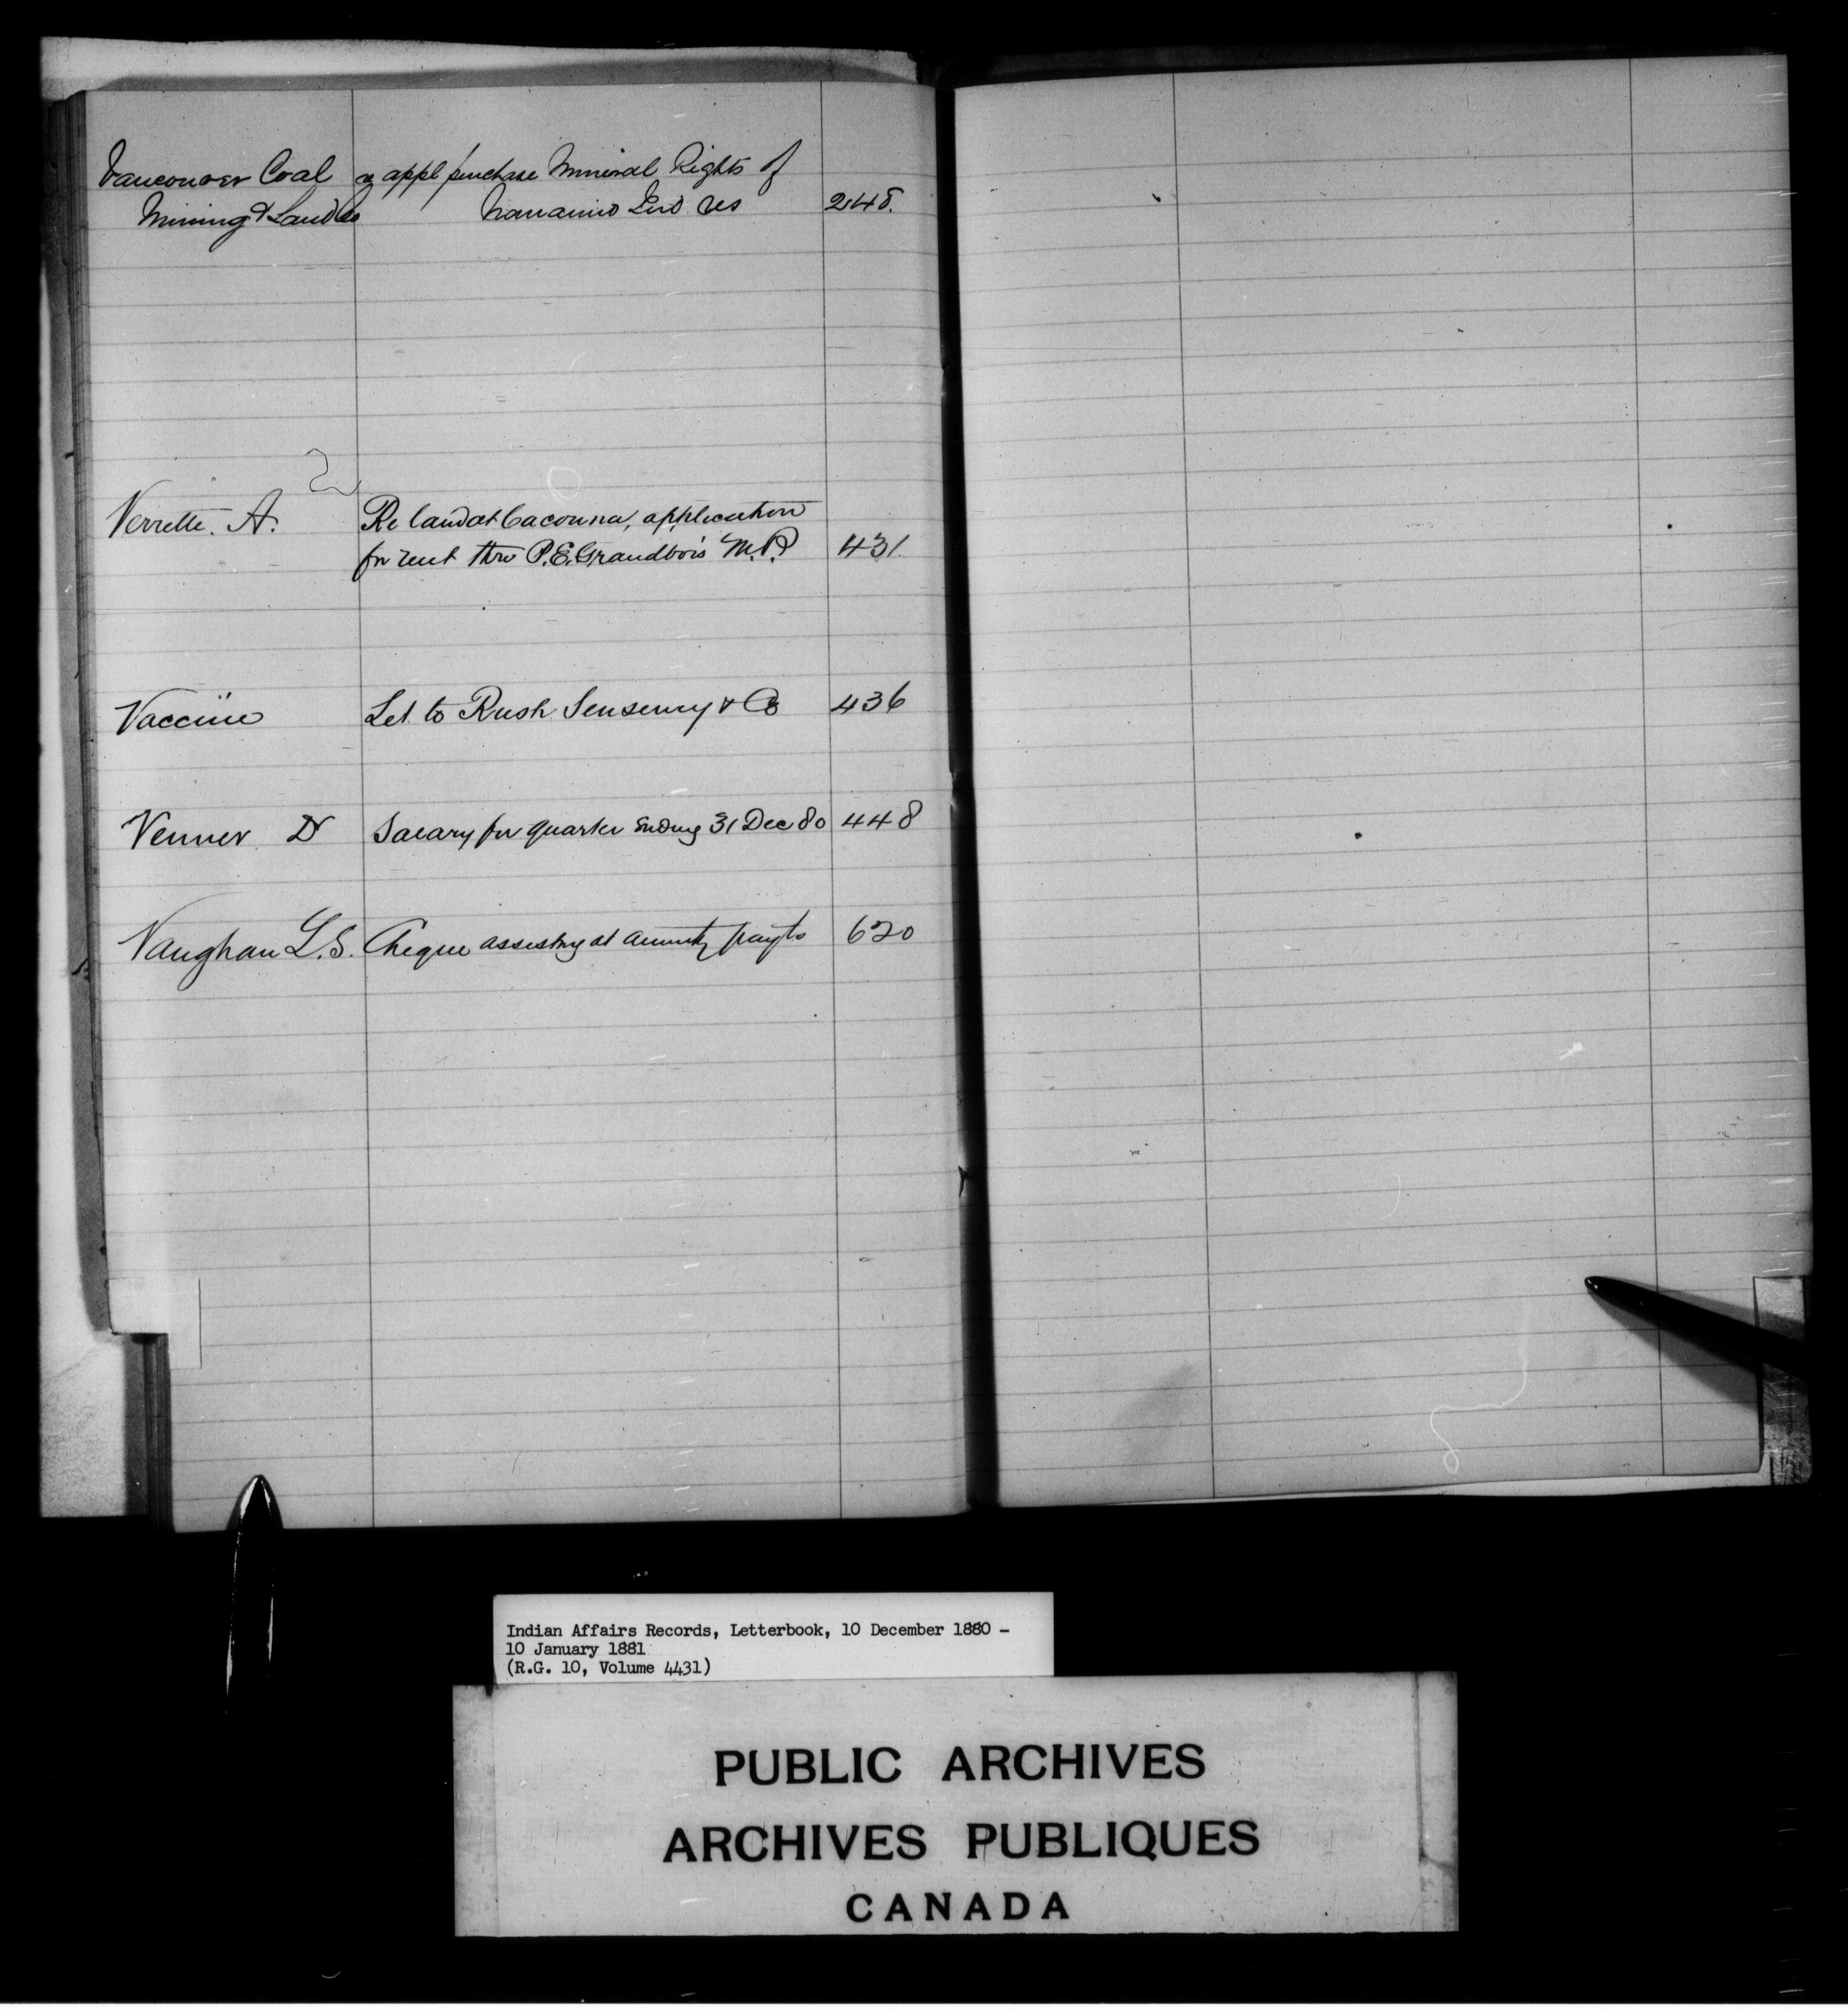 Vancouver Coal appl purchase Mineral Rights of
Mining & Land Co Nanaimo Ind Res 248.
Verrette. A. Re land at Cacouna, application
for rent thro P.E. Grandbois M.P. 431.
Vaccine Let to Rush Sensemy & Co 436
Venner Dr Salary for quarter ending 31 Dec 80 448
Vaughan L.S. Cheque assisting at annuity paymts 620
Indian Affairs Records, Letterbook, 10 December 1880 -
10 January 1881
(R.G. 10, Volume 4431)
PUBLIC ARCHIVES
ARCHIVES PUBLIQUES
CANADA